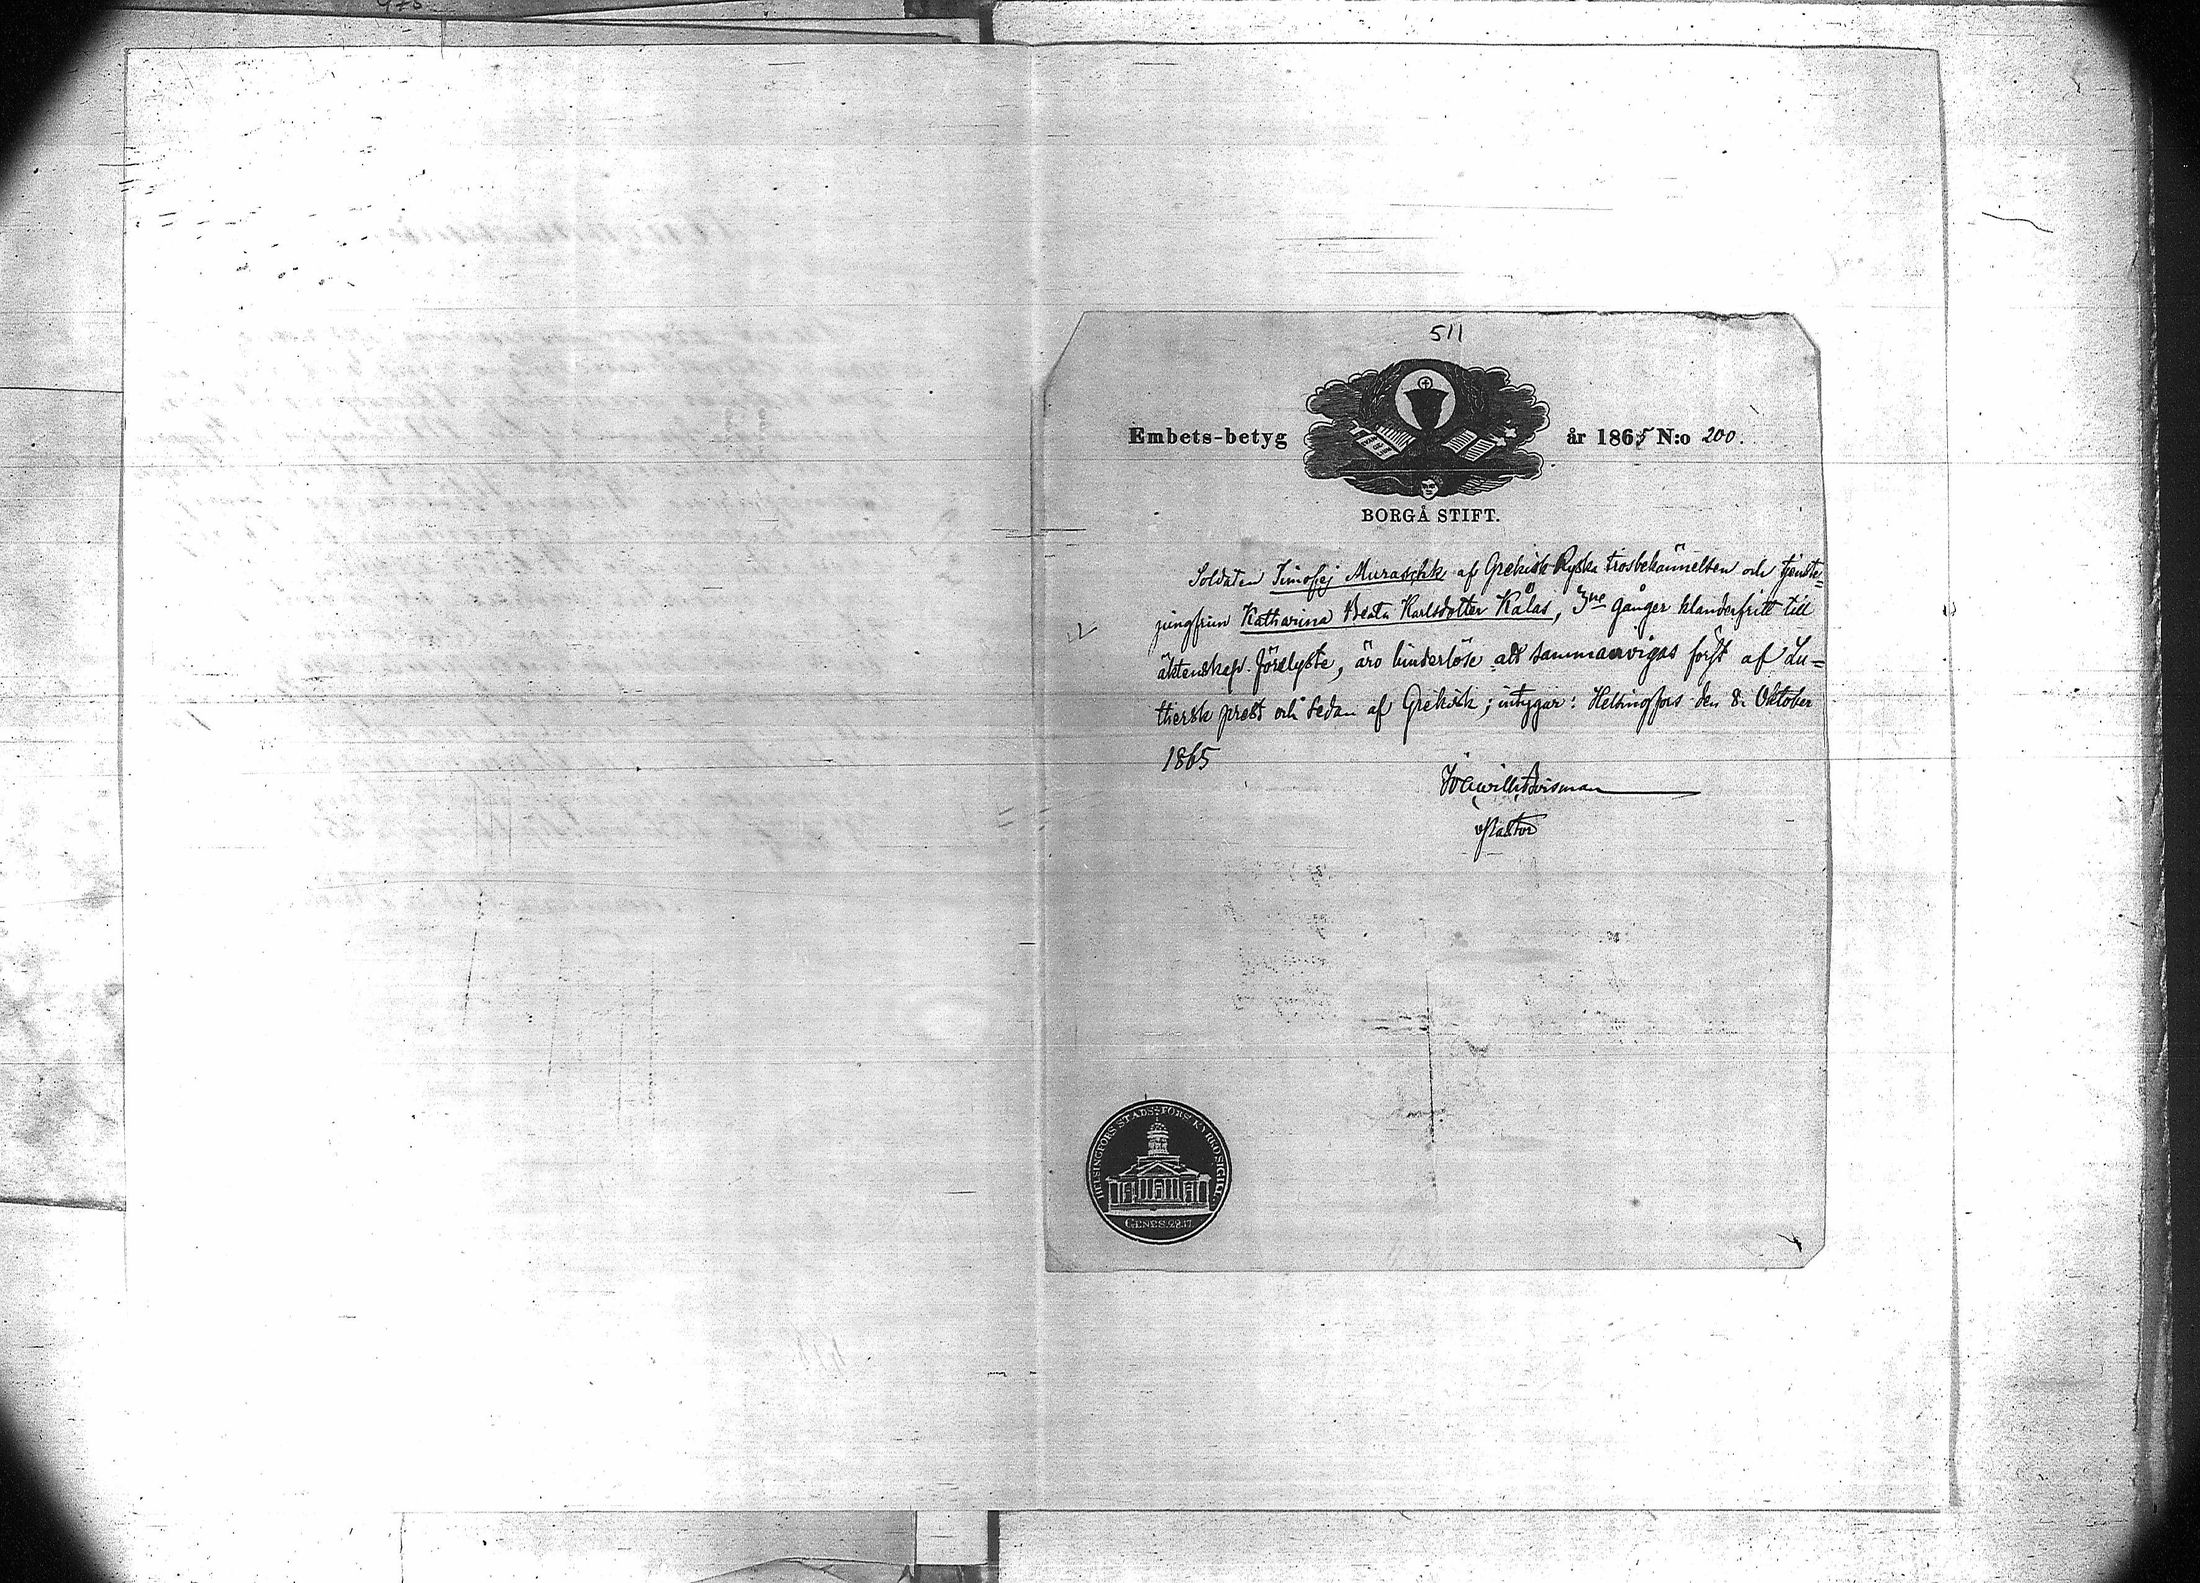 511
Embets-betyg år 1865 N:o 200.
BORGÅ STIFT.
Soldaten Timofej Muraschk af Grekisk Ryska trosbekännelsen och tjenste=
jungfrun Katharina Beata Karlsdotter Kålas, 3ne gånger klanderfritt till
äktenskap förelyste, äro hinderlöse att sammanvigas först af Lu=
thersk prest och sedan af Grekisk; intygar: Helsingfors den 8. Oktober
1865
vPastor
HELSINGFORS STADS-FÖRS. KYRKOSIGILL.
GENES. 28.17.